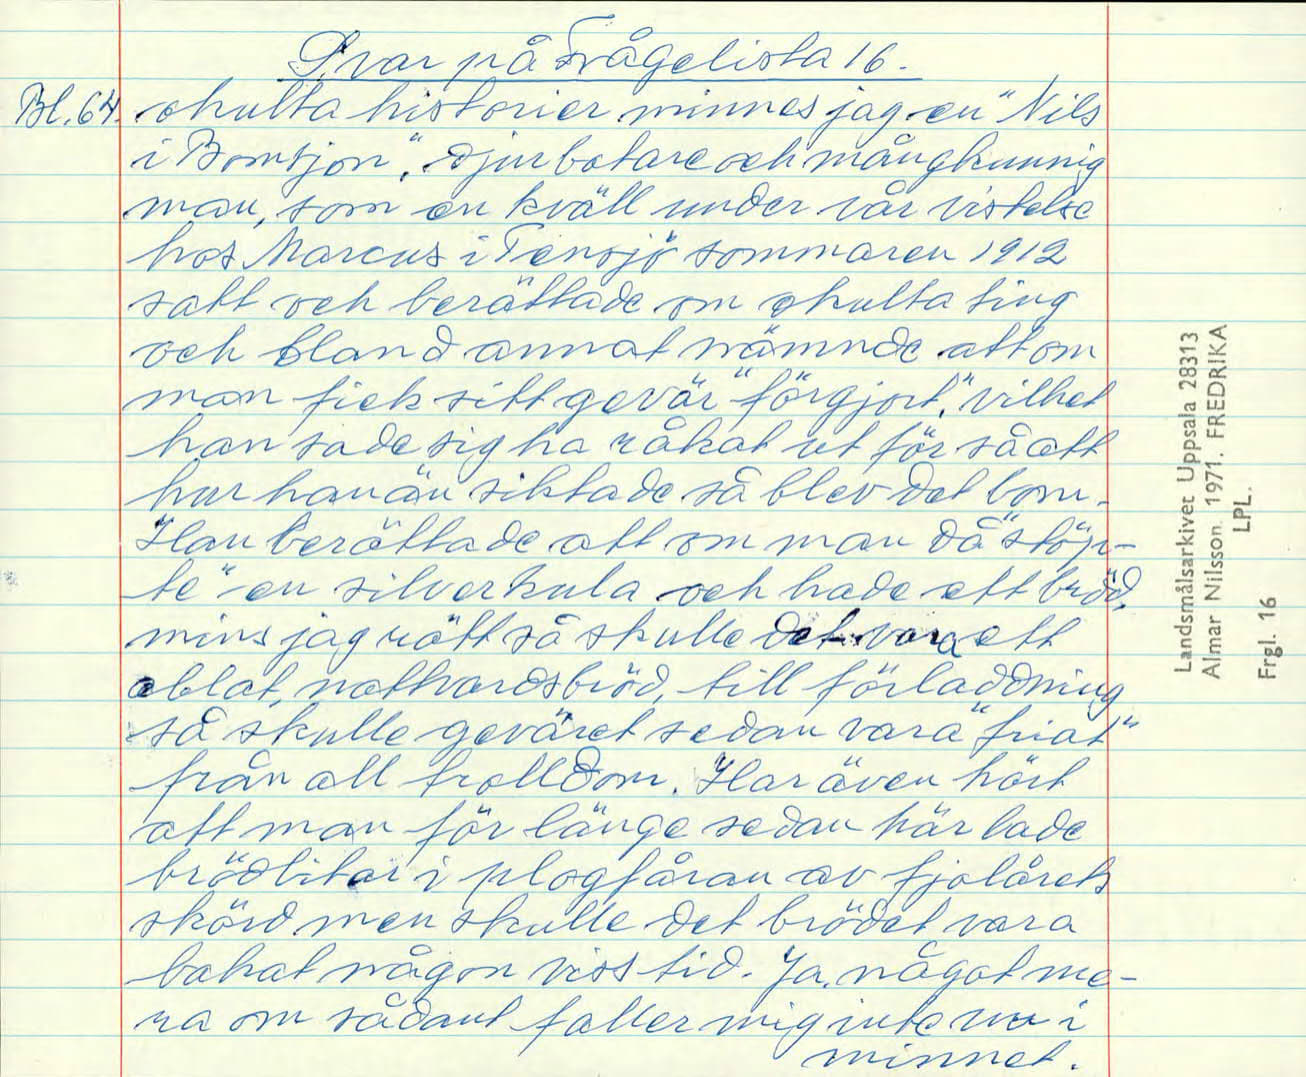 Svar på Frågelista 16.
Bl. 64. okulta historier minnes jag en "Nils
i Bomsjon", djurbotare och mångkunnig
man, som en kväll under vår vistelse
hos Marcus i Tensjö sommaren 1912
satt och berättade om okulta ting
och bland annat nämnde att om
man fick sitt gevär "förgjort", vilket
han sade sig ha råkat ut för så att
hur han än siktade så blev det bom.
Han berättade att om man då "stöp-
te" en silverkula och hade ett bröd,
mins jag rätt så skulle det vara ett
oblat, nattvardsbröd, till förladdning
så skulle geväret sedan vara "friat"
från all trolldom. Har även hört
att man för länge sedan här lade
brödbitar i plogfåran av fjolårets
skörd men skulle det brödet vara
bakat någon viss tid. Ja, något me-
ra om sådant faller mig inte nu i
minnet.
Landsmålsarkivet Uppsala 28313
Almar Nilsson. 1971. FREDRIKA
LPL.
Frgl. 16